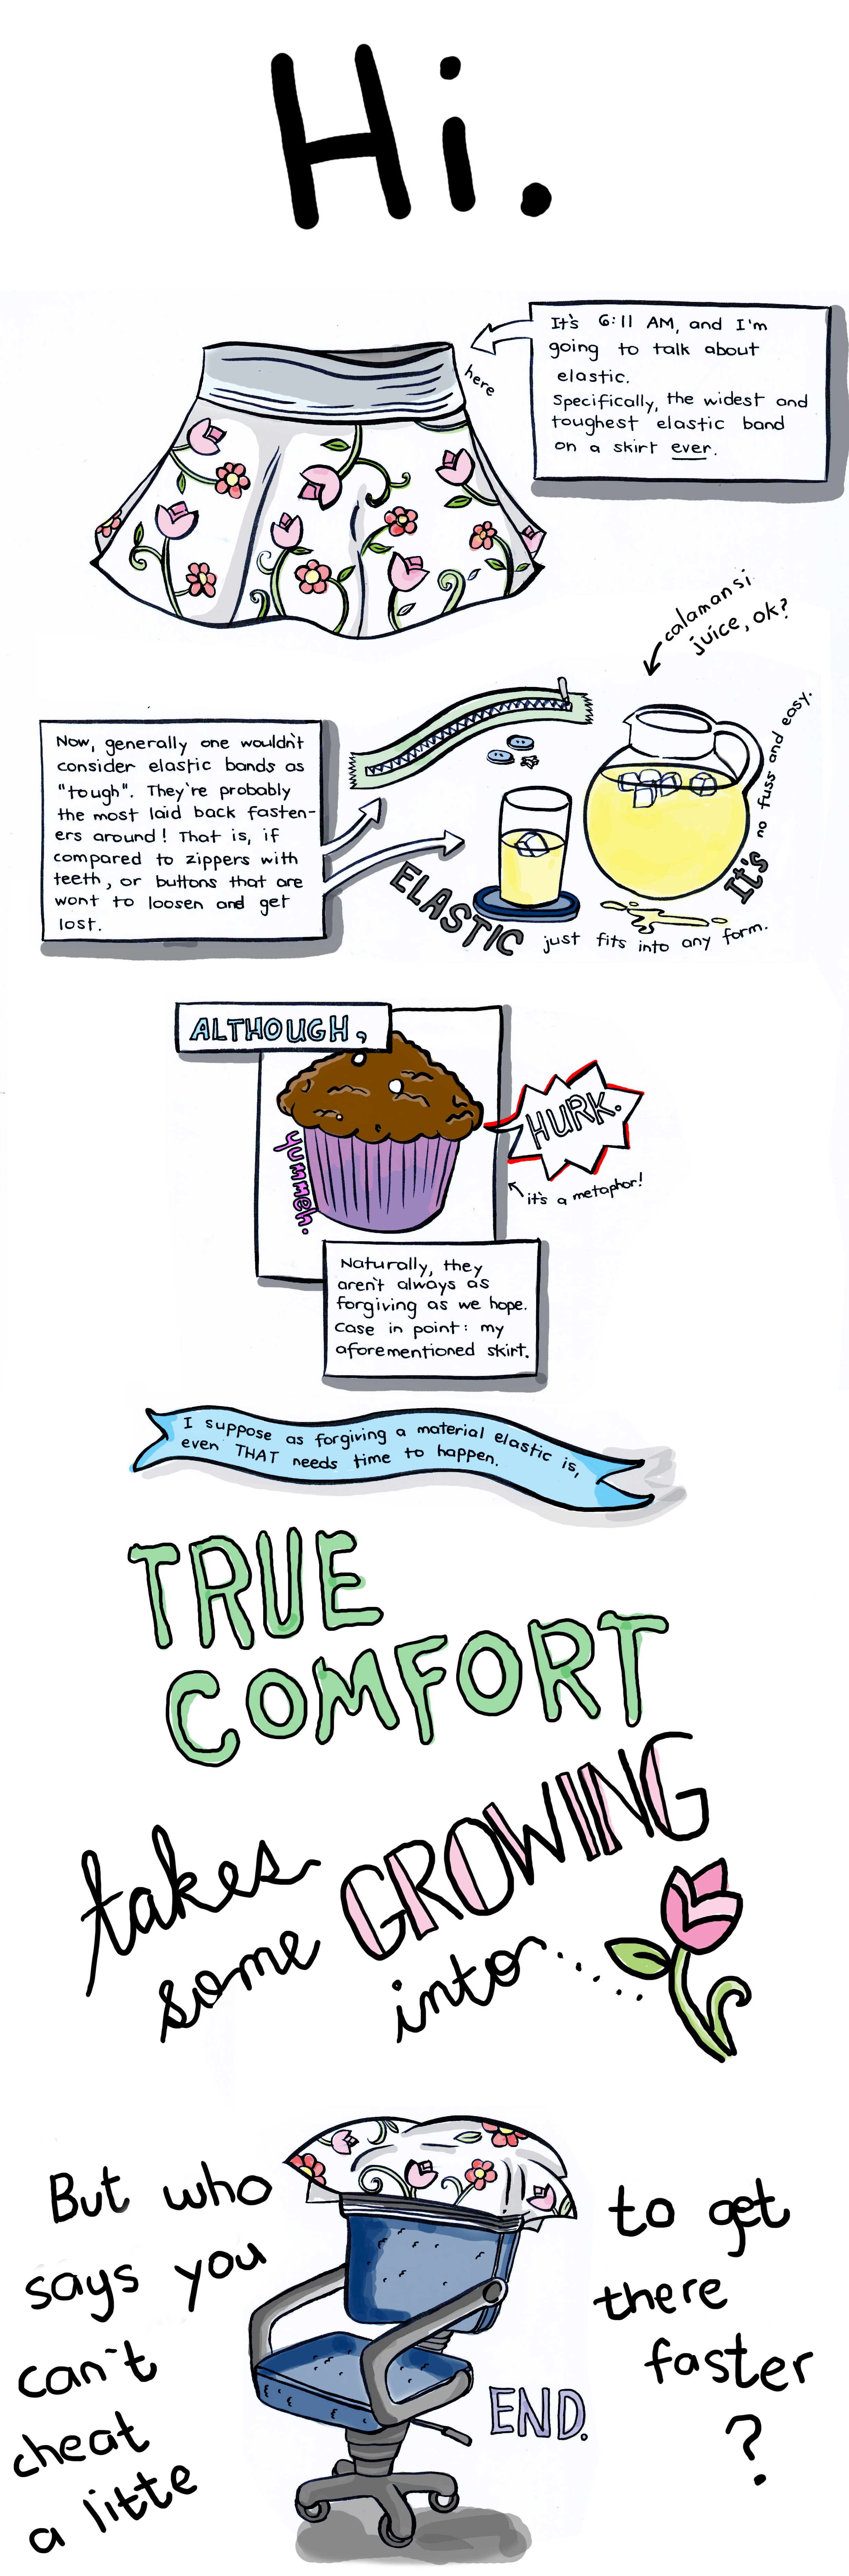 Hi.
It's 6:11 AM, and I'm
going to talk about
elastic.
Specifically, the widest and
toughest elastic band
on a skirt ever.
here
calamansi
juice, ok?
Now, generally one wouldn't
consider elastic bands as
"tough". They're probably
the most laid back fasten-
ers around! That is, if
compared to zippers with
teeth, or buttons that are
wont to loosen and get
lost.
ELASTIC just fits into any form.
It's no fuss and easy.
ALTHOUGH,
yummeh.
HURK.
it's a metaphor!
Naturally, they
aren't always as
forgiving as we hope.
Case in point: my
aforementioned skirt.
I suppose as forgiving a material elastic is,
even THAT needs time to happen.
TRUE
COMFORT
takes
some GROWING
into.....
But who
says you
can't
cheat
a litte
to get
there
faster
?
END.